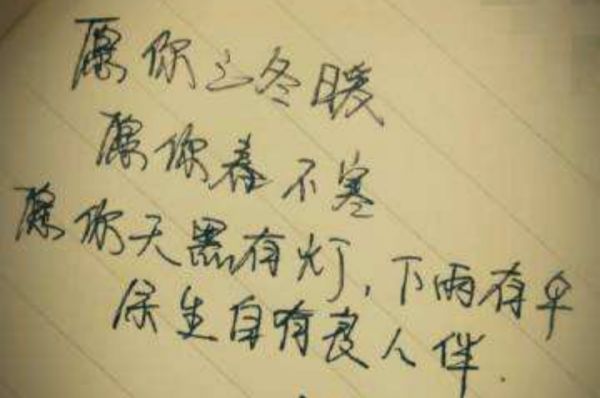 愿你三冬暖
愿你春不寒
愿你天黑有灯，下雨有伞
余生自有良人伴.